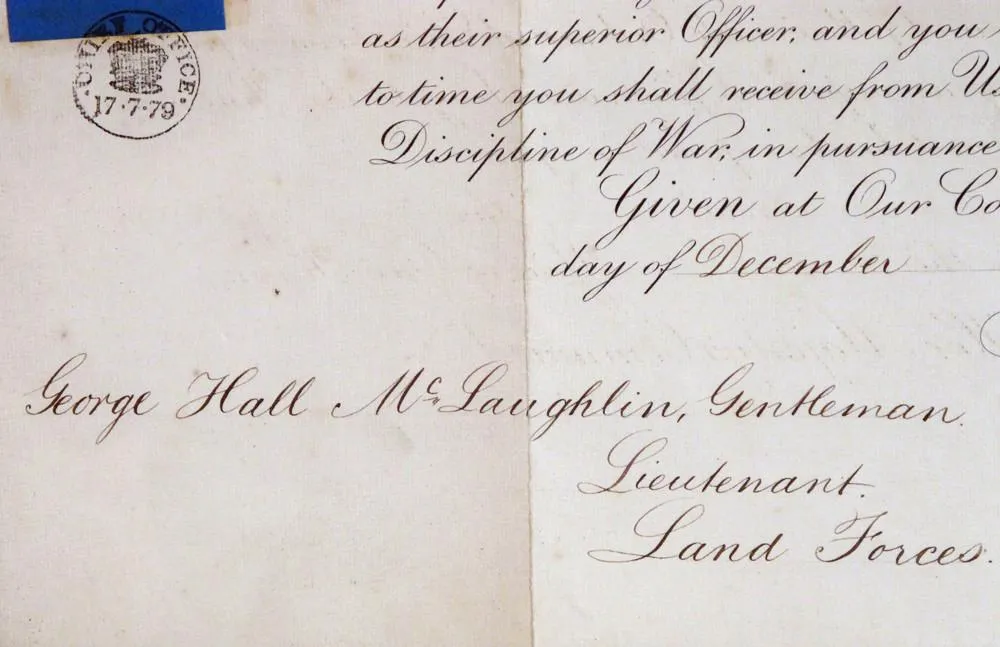 as their superior Officer, and you
to time you shall receive from Us
Discipline of War, in pursuance
Given at Our Co
day of December
OFFICE
17·7·79
George Hall Mc Laughlin, Gentleman.
Lieutenant.
Land Forces.